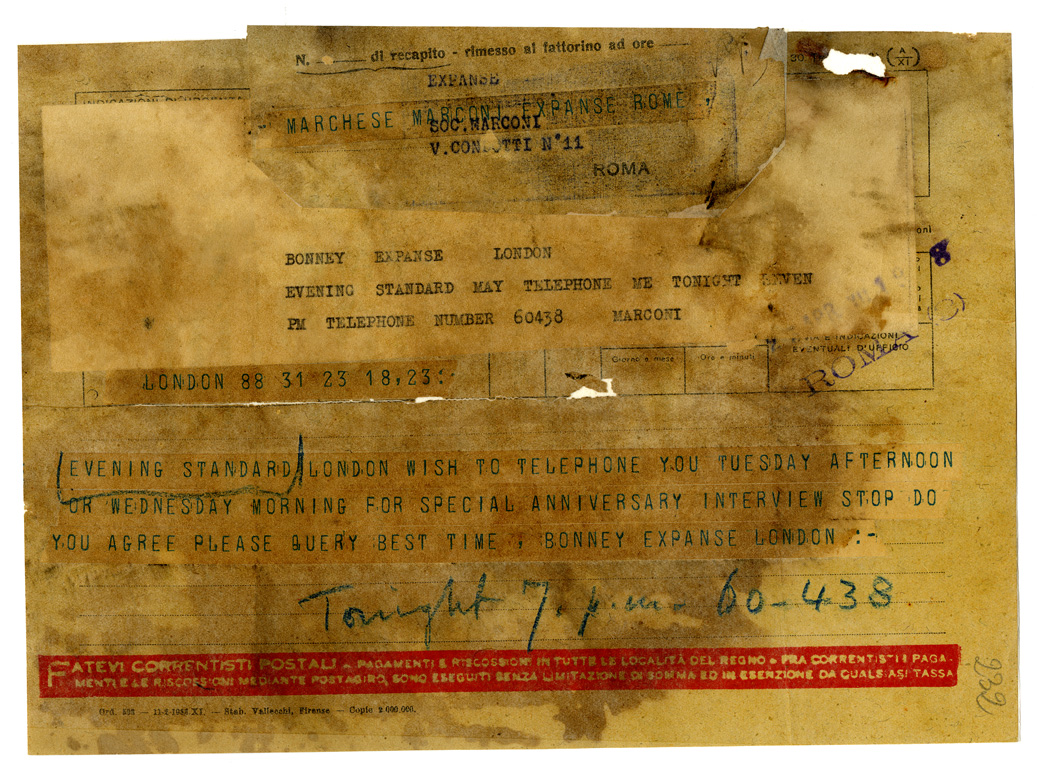 N. di recapito - rimesso al fattorino ad ore
(A XI)
EXPANSE
INDICAZIONI DI URGENZA
:- MARCHESE MARCONI EXPANSE ROME ,
SOC.MARCONI
V.CONDOTTI N°11
ROMA
BONNEY EXPANSE LONDON
EVENING STANDARD MAY TELEPHONE ME TONIGHT
PM TELEPHONE NUMBER 60438 MARCONI
8
VIA E INDICAZIONI
EVENTUALI D'UFFICIO
ROMA
Giorno e mese
Ore e minuti
LONDON 88 31 23 18,23:-
EVENING STANDARD LONDON WISH TO TELEPHONE YOU TUESDAY AFTERNOON
OR WEDNESDAY MORNING FOR SPECIAL ANNIVERSARY INTERVIEW STOP DO
YOU AGREE PLEASE QUERY BEST TIME , BONNEY EXPANSE LONDON :-
Tonight 7. p.m. 60-438
FATEVI CORRENTISTI POSTALI - PAGAMENTI E RISCOSSIONI IN TUTTE LE LOCALITÀ DEL REGNO - FRA CORRENTISTI I PAGA-
MENTI E LE RISCOSSIONI MEDIANTE POSTAGIRO, SONO ESEGUITI SENZA LIMITAZIONE DI SOMMA ED IN ESENZIONE DA QUALSIASI TASSA
Stab. Vallecchi, Firenze — Copie 2.000.000.
232